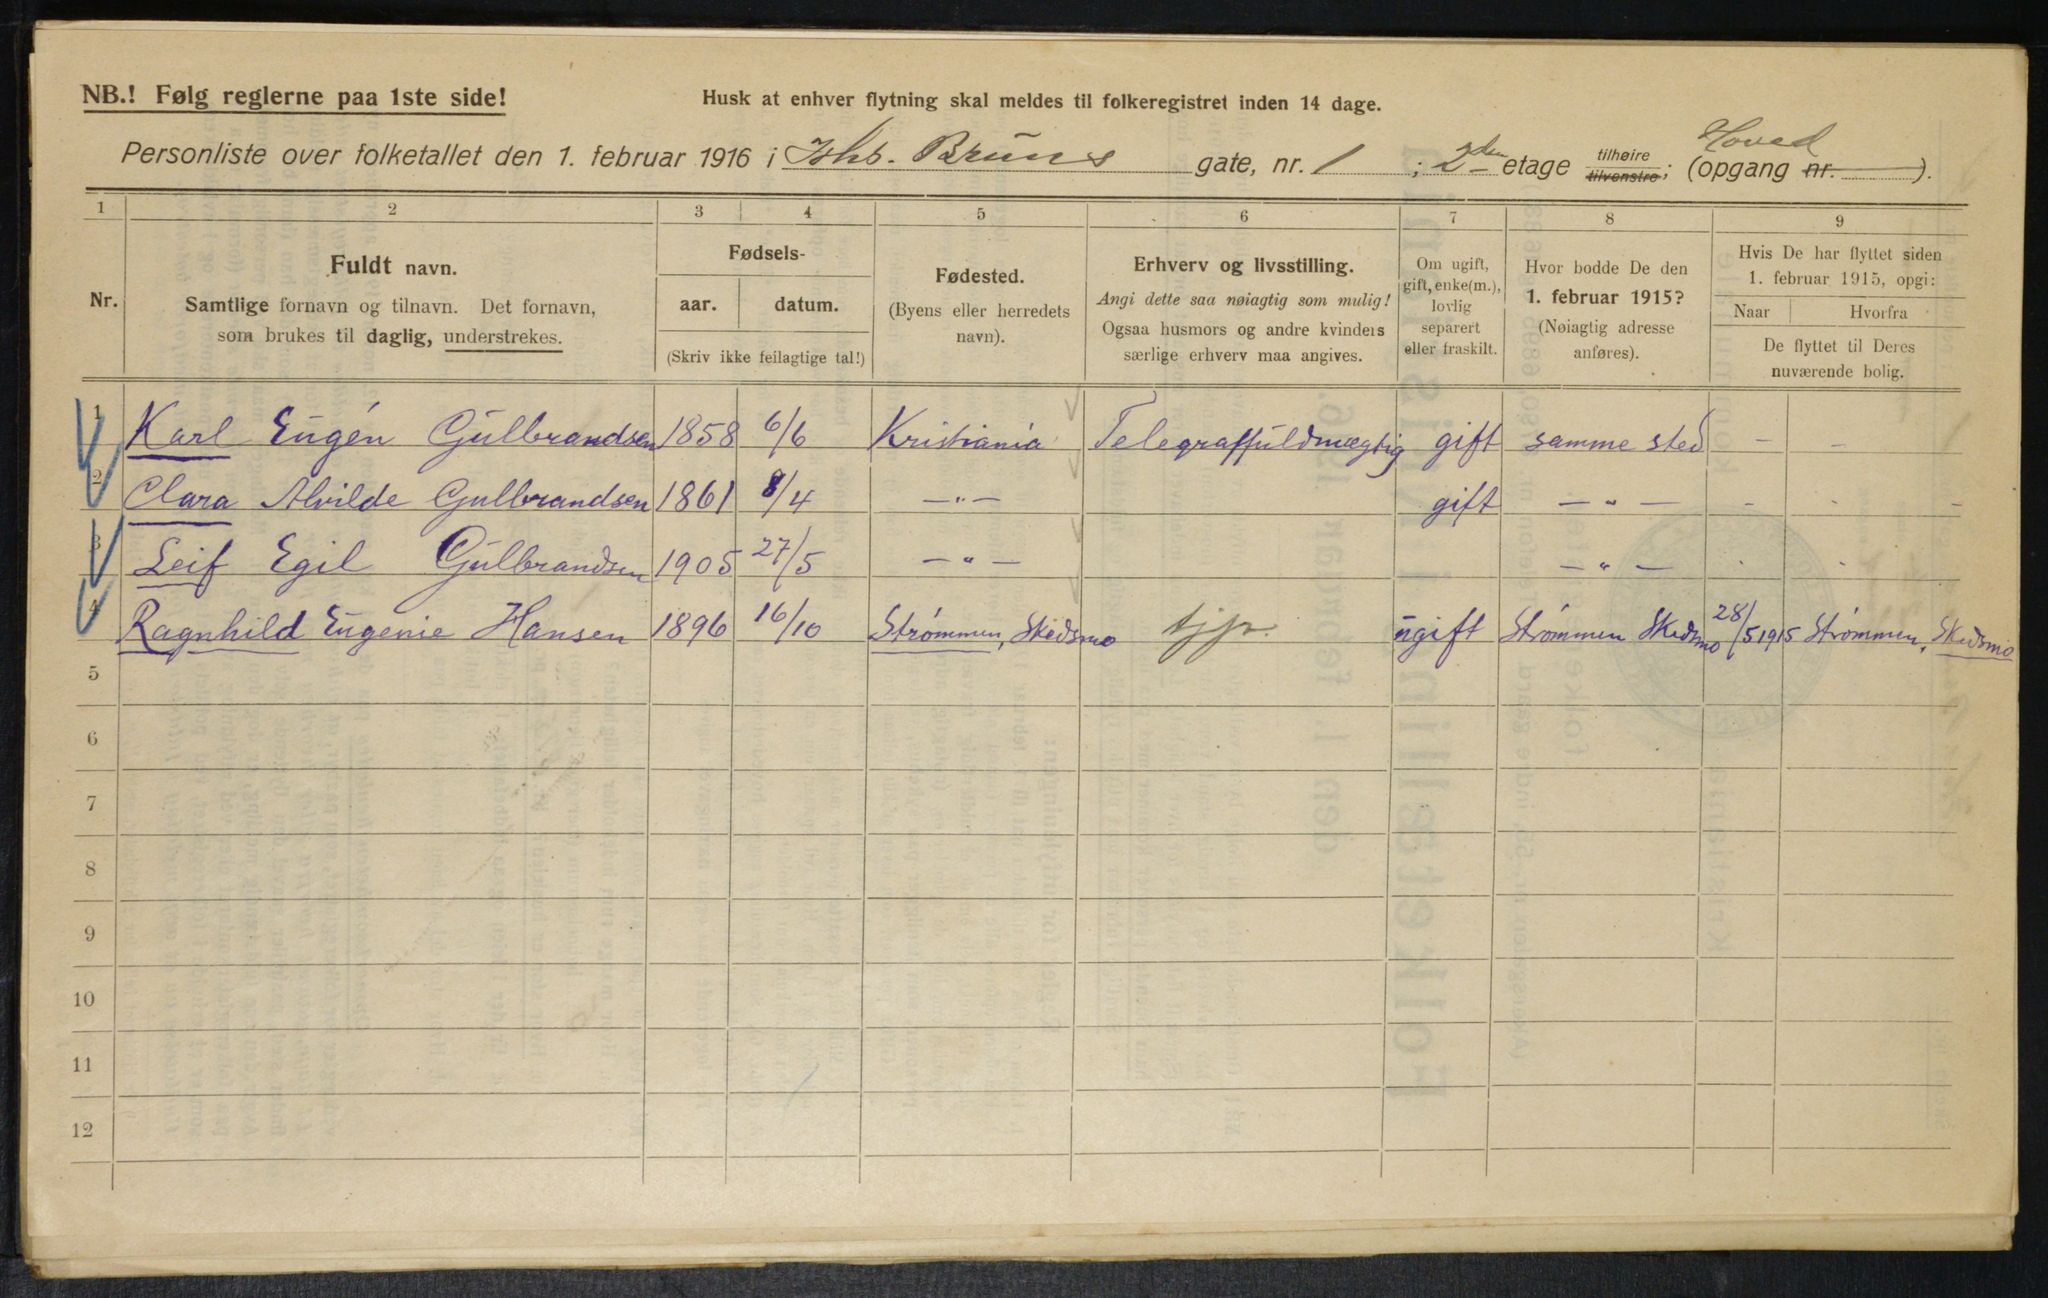 NB.! Følg reglerne paa 1ste side!
Husk at enhver flytning skal meldes til folkeregistret inden 14 dage.
Personliste over folketallet den 1. februar 1916 i Jkb. Bruns gate, nr. 1 ; 2den etage tilhøire tilvenstre; (opgang nr. Hoved ).
1 2 3 4 5 6 7 8 9
Nr.
Fuldt navn.
Samtlige fornavn og tilnavn. Det fornavn,
som brukes til daglig, understrekes.
Fødsels-
aar. datum.
(Skriv ikke feilagtige tal!)
Fødested.
(Byens eller herredets
navn).
Erhverv og livsstilling.
Angi dette saa nøiagtig som mulig!
Ogsaa husmors og andre kvinders
særlige erhverv maa angives.
Om ugift,
gift, enke(m.),
lovlig
separert
eller fraskilt.
Hvor bodde De den
1. februar 1915?
(Nøiagtig adresse
anføres).
Hvis De har flyttet siden
1. februar 1915, opgi:
Naar Hvorfra
De flyttet til Deres
nuværende bolig.
1 Karl Eugén Gulbrandsen 1858 6/6 Kristiania Telegraffuldmægtig gift samme sted — —
2 Clara Alvilde Gulbrandsen 1861 8/4 —"— gift —"— - - -
3 Leif Egil Gulbrandsen 1905 27/5 —"— —"— - -
4 Ragnhild Eugenie Hansen 1896 16/10 Strømmen, Skedsmo tjp. ugift Strømmen Skedsmo 28/5 1915 Strømmen, Skedsmo
5
6
7
8
9
10
11
12